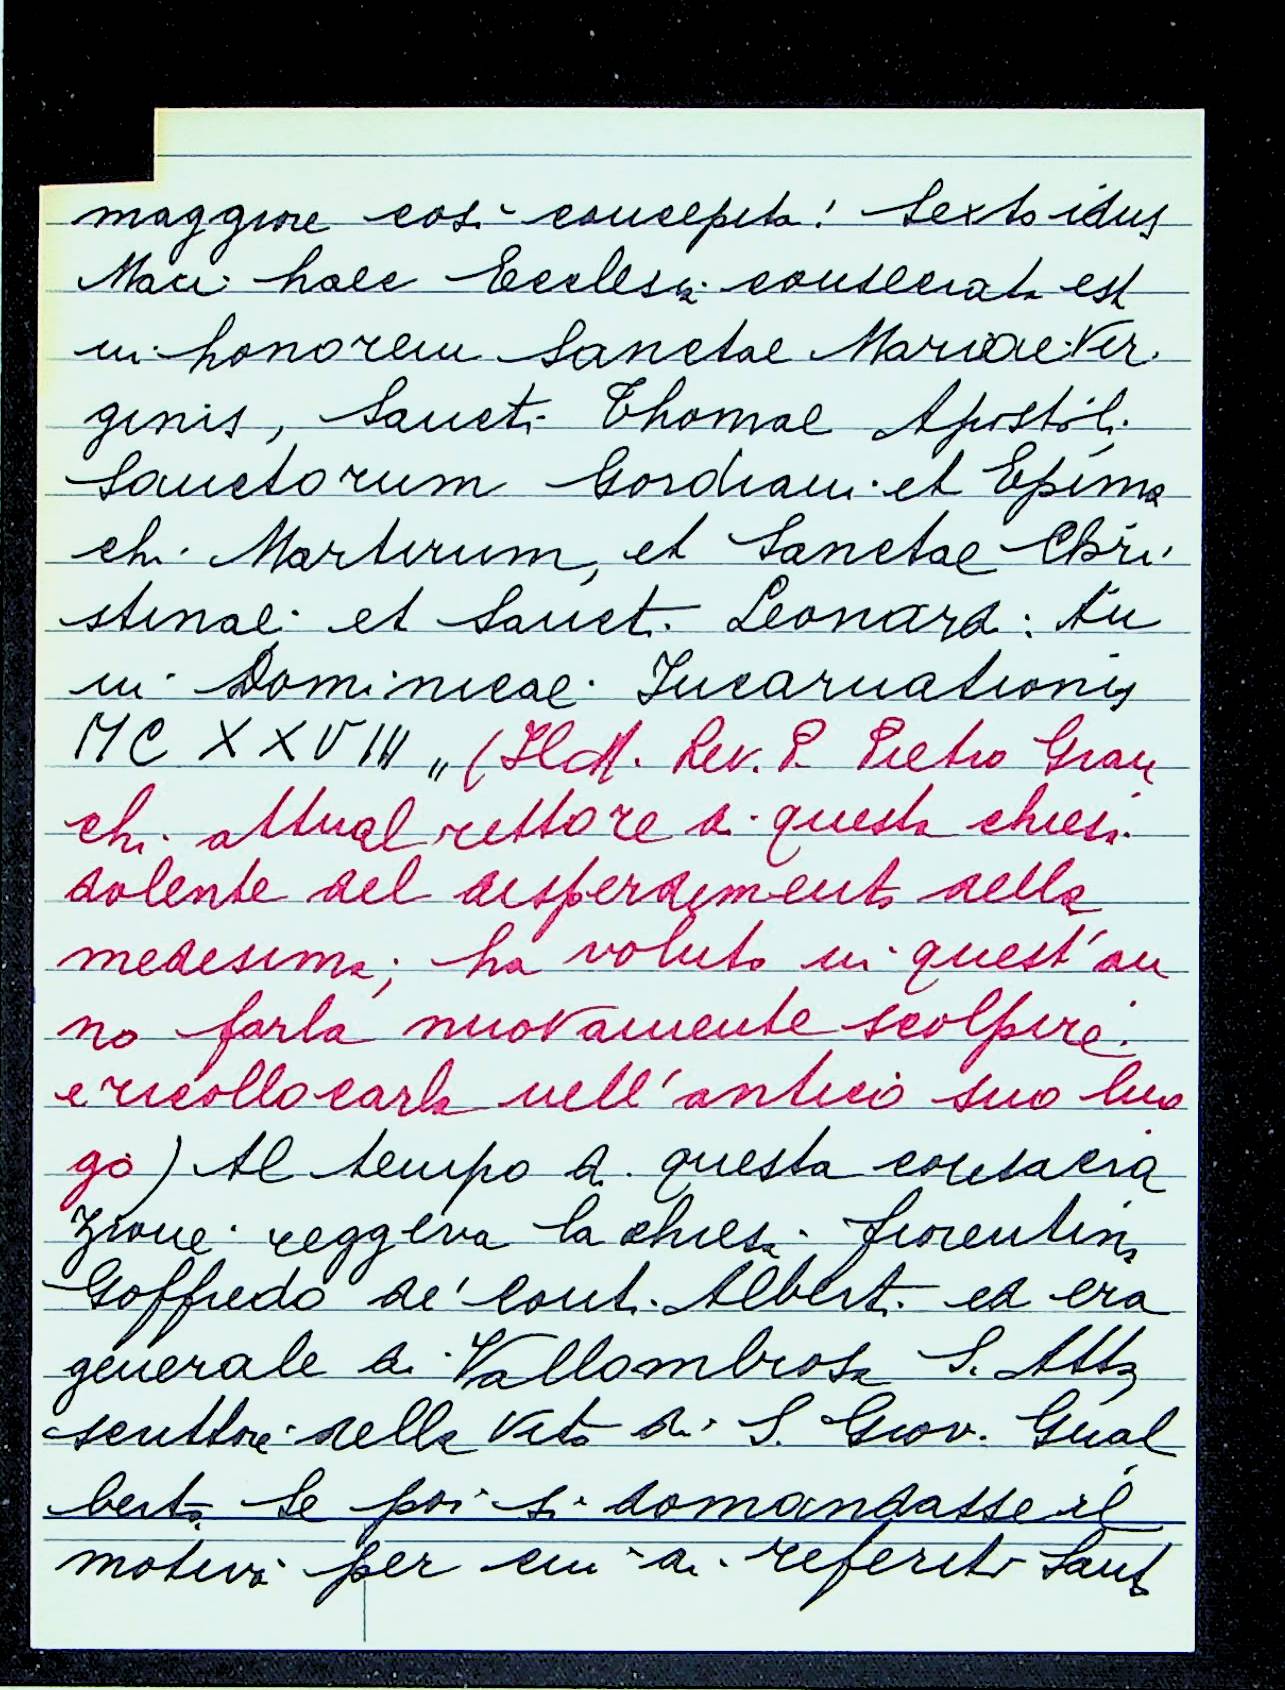 maggiore così concepita: Sexto idus
Maii haec Ecclesia consecrata est
in honorem Sanctae Mariae Vir
ginis, Sancti Thomae Apostoli
Sanctorum Gordiani et Epima
chi Martirum, et Sanctae Chri
stinae et Sancti Leonardi: An
ni Dominicae Incarnationis
MCXXVIII „ (Il M. Rev. P. Pietro Gran
chi attual rettore di questa chiesa
dolente del disperdimento della
medesima, ha voluto in quest'an
no farla nuovamente scolpire
e ricollocarla nell'antico suo luo
go) Al tempo di questa consacra
zione reggeva la chiesa fiorentina
Goffredo de' Conti Alberti ed era
generale di Vallombrosa S. Atto
scrittore della Vita di S. Giov. Gual
berto. Se poi si domandasse il
motivo per cui di referito Santo